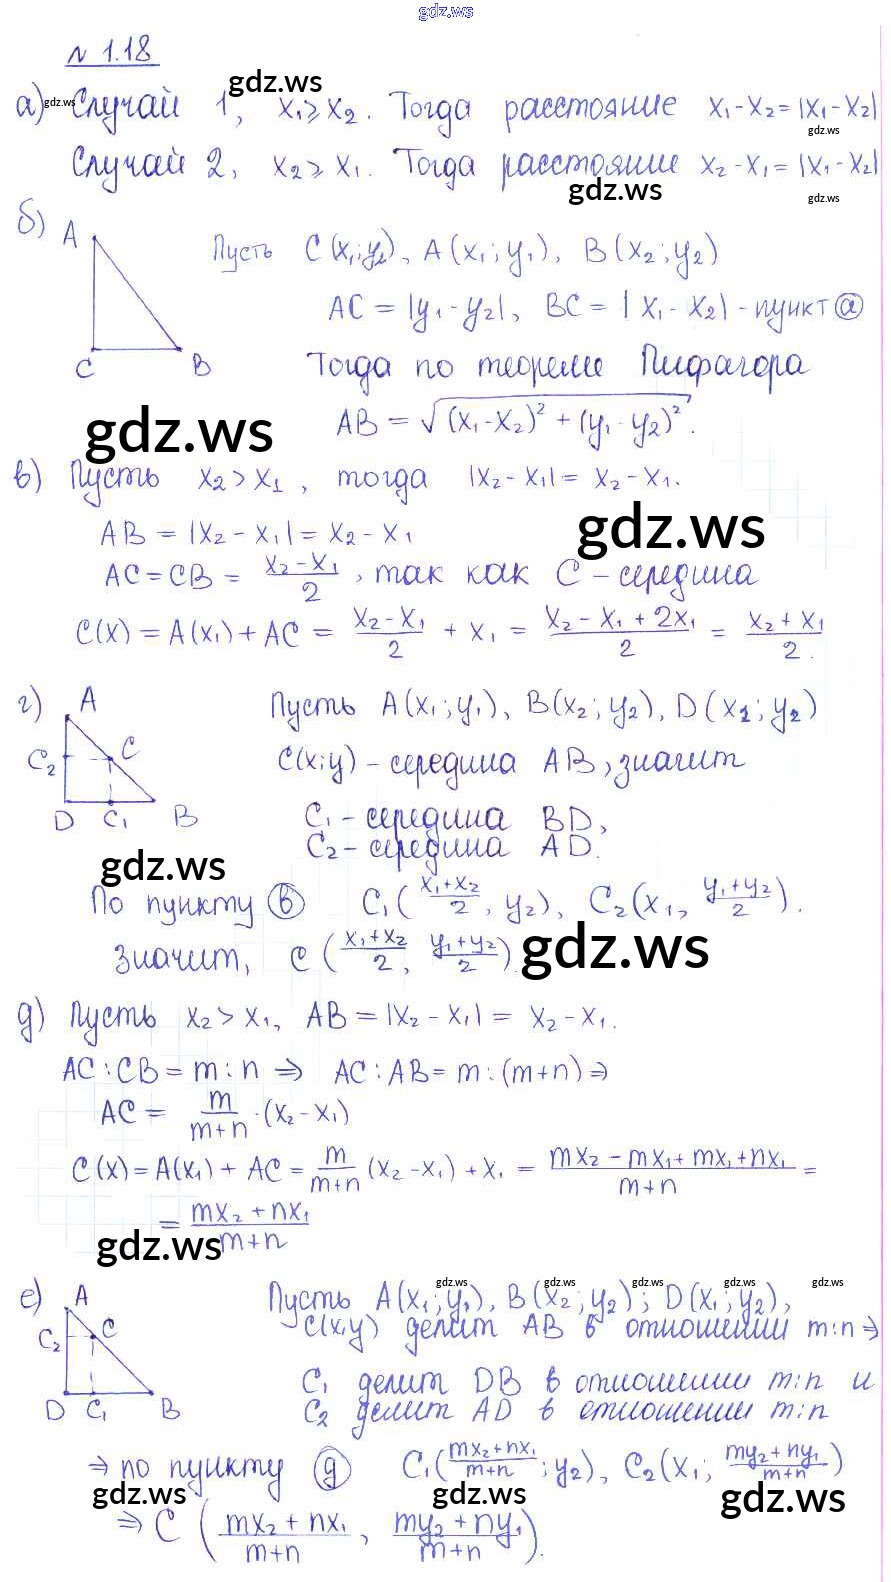 gdz.ws
N 1.18
gdz.ws
а) gdz.ws Случай 1, x₁ ⩾ x₂. Тогда расстояние x₁ - x₂ = |x₁ - x₂|
gdz.ws
Случай 2, x₂ ⩾ x₁. Тогда расстояние x₂ - x₁ = |x₁ - x₂|
gdz.ws gdz.ws
б) A Пусть C(x₁; y₂), A(x₁; y₁), B(x₂; y₂)
AC = |y₁ - y₂|, BC = |x₁ - x₂| - пункт ⓐ
C B Тогда по теореме Пифагора
gdz.ws AB = √((x₁ - x₂)² + (y₁ - y₂)²).
в) Пусть x₂ > x₁, тогда |x₂ - x₁| = x₂ - x₁.
AB = |x₂ - x₁| = x₂ - x₁ gdz.ws
AC = CB = (x₂ - x₁)/2, так как C - середина
C(x) = A(x₁) + AC = (x₂ - x₁)/2 + x₁ = (x₂ - x₁ + 2x₁)/2 = (x₂ + x₁)/2.
г) A Пусть A(x₁; y₁), B(x₂; y₂), D(x₁; y₂)
C₂ C C(x; y) - середина AB, значит
D C₁ B C₁ - середина BD,
C₂ - середина AD.
gdz.ws
По пункту ⓑ C₁((x₁ + x₂)/2, y₂), C₂(x₁, (y₁ + y₂)/2).
Значит, C((x₁ + x₂)/2, (y₁ + y₂)/2). gdz.ws
д) Пусть x₂ > x₁, AB = |x₂ - x₁| = x₂ - x₁.
AC : CB = m : n ⇒ AC : AB = m : (m + n) ⇒
AC = m/(m + n) · (x₂ - x₁)
C(x) = A(x₁) + AC = m/(m + n) (x₂ - x₁) + x₁ = (mx₂ - mx₁ + mx₁ + nx₁)/(m + n) =
= (mx₂ + nx₁)/(m + n)
gdz.ws
gdz.ws gdz.ws gdz.ws gdz.ws
е) A Пусть A(x₁; y₁), B(x₂; y₂); D(x₁; y₂),
C₂ C C(x; y) делит AB в отношении m:n ⇒
D C₁ B C₁ делит DB в отношении m:n и
C₂ делит AD в отношении m:n
⇒ по пункту ⓖ C₁((mx₂ + nx₁)/(m + n); y₂), C₂(x₁; (my₂ + ny₁)/(m + n))
gdz.ws gdz.ws gdz.ws
⇒ C((mx₂ + nx₁)/(m + n), (my₂ + ny₁)/(m + n)).